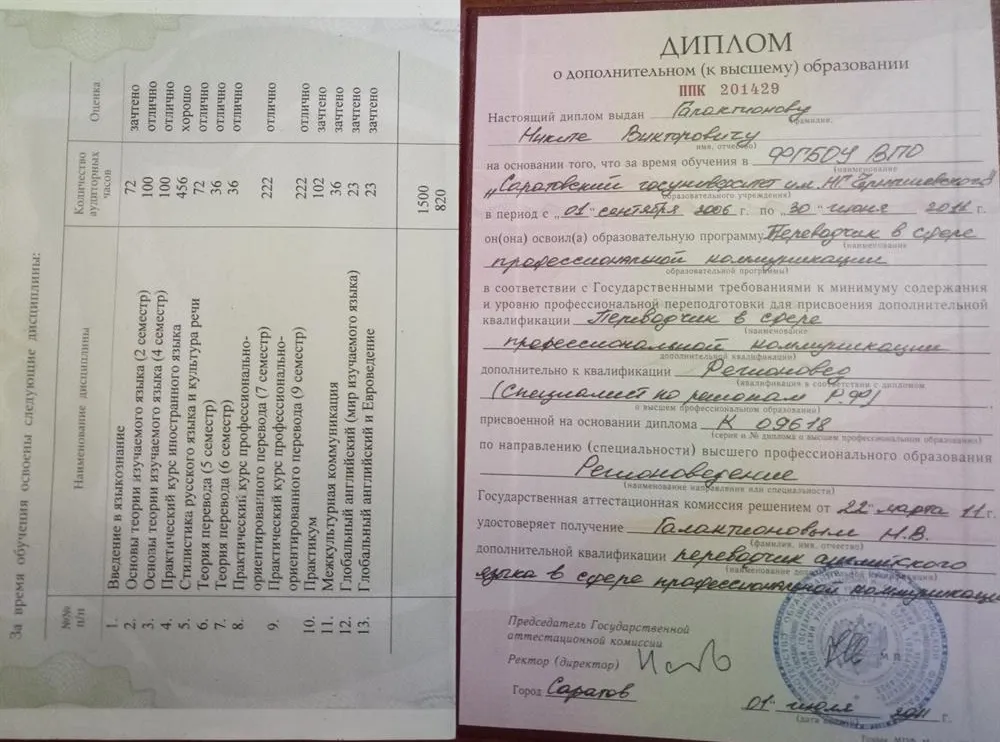 За время обучения освоены следующие дисциплины:
№№ п/п Наименование дисциплины Количество аудиторных часов Оценка
1. Введение в языкознание 72 зачтено
2. Основы теории изучаемого языка (2 семестр) 100 отлично
3. Основы теории изучаемого языка (4 семестр) 100 отлично
4. Практический курс иностранного языка 456 хорошо
5. Стилистика русского языка и культура речи 72 отлично
6. Теория перевода (5 семестр) 36 отлично
7. Теория перевода (6 семестр) 36 отлично
8. Практический курс профессионально-
ориентированного перевода (7 семестр) 222 отлично
9. Практический курс профессионально-
ориентированного перевода (9 семестр) 222 отлично
10. Практикум 102 зачтено
11. Межкультурная коммуникация 36 зачтено
12. Глобальный английский (мир изучаемого языка) 23 зачтено
13. Глобальный английский и Евроведение 23 зачтено
1500
820
ДИПЛОМ
о дополнительном (к высшему) образовании
ППК 201429
Настоящий диплом выдан Галактионову
фамилия,
Никите Викторовичу
имя, отчество)
на основании того, что за время обучения в ФГБОУ ВПО
(наименование
„Саратовский госуниверситет им. НГ Чернышевского"
образовательного учреждения)
в период с „01" сентября 2006 г. по „30" июня 2011 г.
он(она) освоил(а) образовательную программу Переводчик в сфере
(наименование
профессиональной коммуникации
образовательной программы)
в соответствии с Государственными требованиями к минимуму содержания
и уровню профессиональной переподготовки для присвоения дополнительной
квалификации Переводчик в сфере
(наименование
профессиональной коммуникации
дополнительной квалификации)
дополнительно к квалификации Регионовед
(квалификация в соответствии с дипломом
(Специалист по регионам Р.Ф)
о высшем профессиональном образовании)
присвоенной на основании диплома К 09618
(серия и № диплома о высшем профессиональном образовании)
по направлению (специальности) высшего профессионального образования
Регионоведение
(наименование направления или специальности)
Государственная аттестационная комиссия решением от „22" марта 11 г.
удостоверяет получение Галактионовым Н.В.
(фамилия, имя, отчество)
дополнительной квалификации переводчик английского
(наименование
языка в сфере профессиональной коммуникации
Председатель Государственной
аттестационной комиссии
Ректор (директор)
М.П.
Город Саратов
„01" июля 2011 г.
(дата